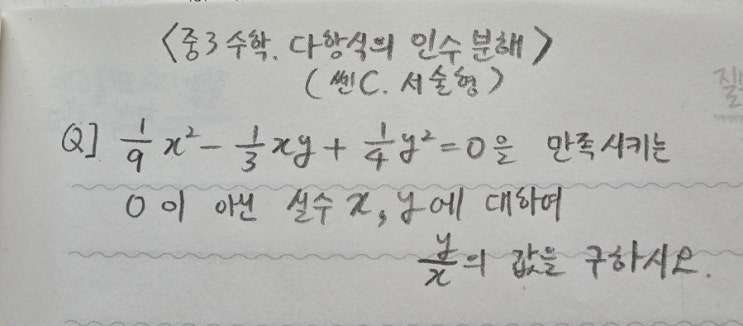 <중3 수학. 다항식의 인수분해>
(쎈C. 서술형)
Q] 1/9 x² - 1/3 xy + 1/4 y² = 0 을 만족시키는
0이 아닌 실수 x, y에 대하여
y/x 의 값을 구하시오.